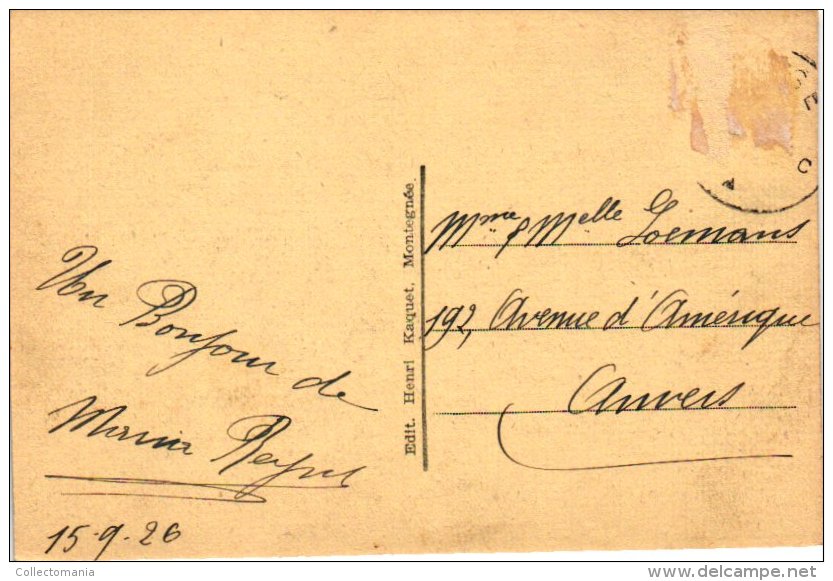 Un Bonjour de
Maria
15-9-26
Edit. Henri Kaquet, Montegnée.
Mme & Melle Loemans
192, Avenue d'Amérique
Anvers
Collectomania
delcampe.net